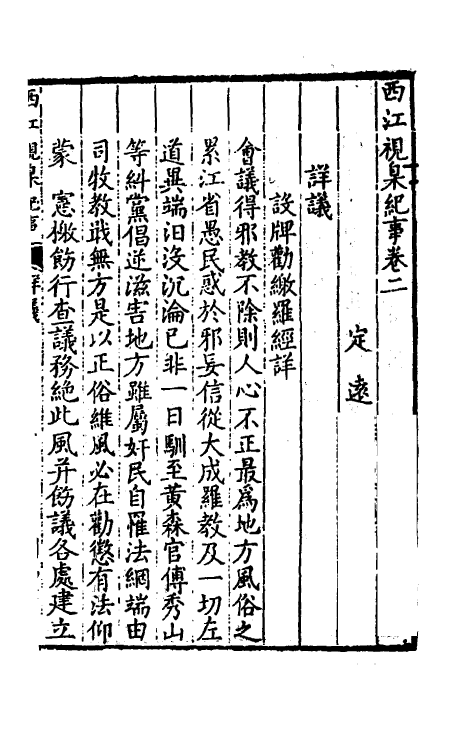 西江視臬紀事卷二
定遠
詳議
設牌勸繳羅經詳
會議得邪教不除則人心不正最爲地方風俗之
累江省愚民惑於邪妄信從大成羅教及一切左
道異端汨沒沉淪已非一日馴至黃森官傅秀山
等糾黨倡逆滋害地方雖屬奸民自罹法網端由
司牧教戢無方是以正俗維風必在勸懲有法仰
蒙　憲檄飭行查議務絶此風并飭議各處建立
西江視臬紀事
詳議